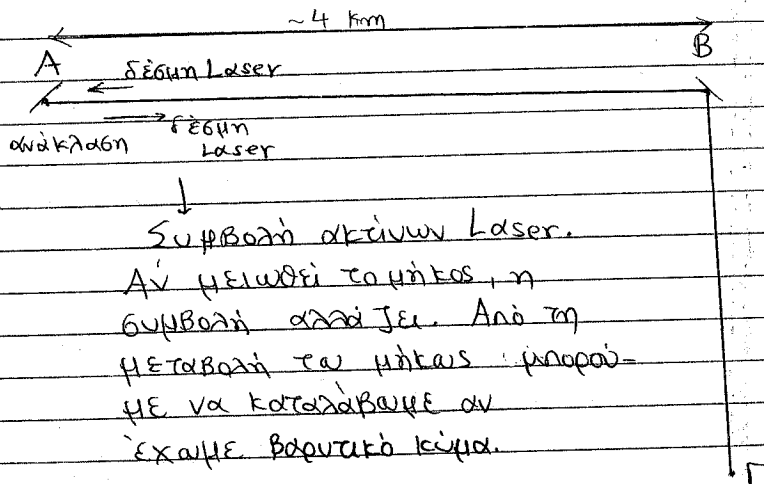 ~4 km
A
B
δέσμη Laser
ανάκλαση
δέσμη
Laser
Συμβολή ακτίνων Laser.
Αν μειωθεί το μήκος, η
συμβολή αλλάζει. Από τη
μεταβολή του μήκους μπορού-
με να καταλάβουμε αν
έχουμε βαρυτικό κύμα.
Γ